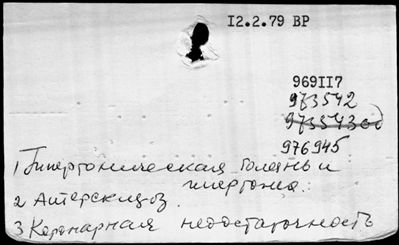 I2.2.79 ВР
969II7
973542
976945
1 Гипертоническая болезнь и
гипертония.
2 Атерсклероз.
3 Коронарная недостаточность